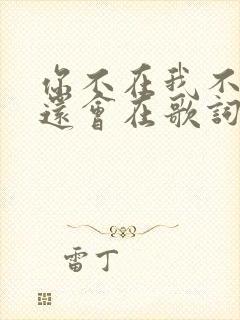 你不在我不
還會在歌詞
雷丁